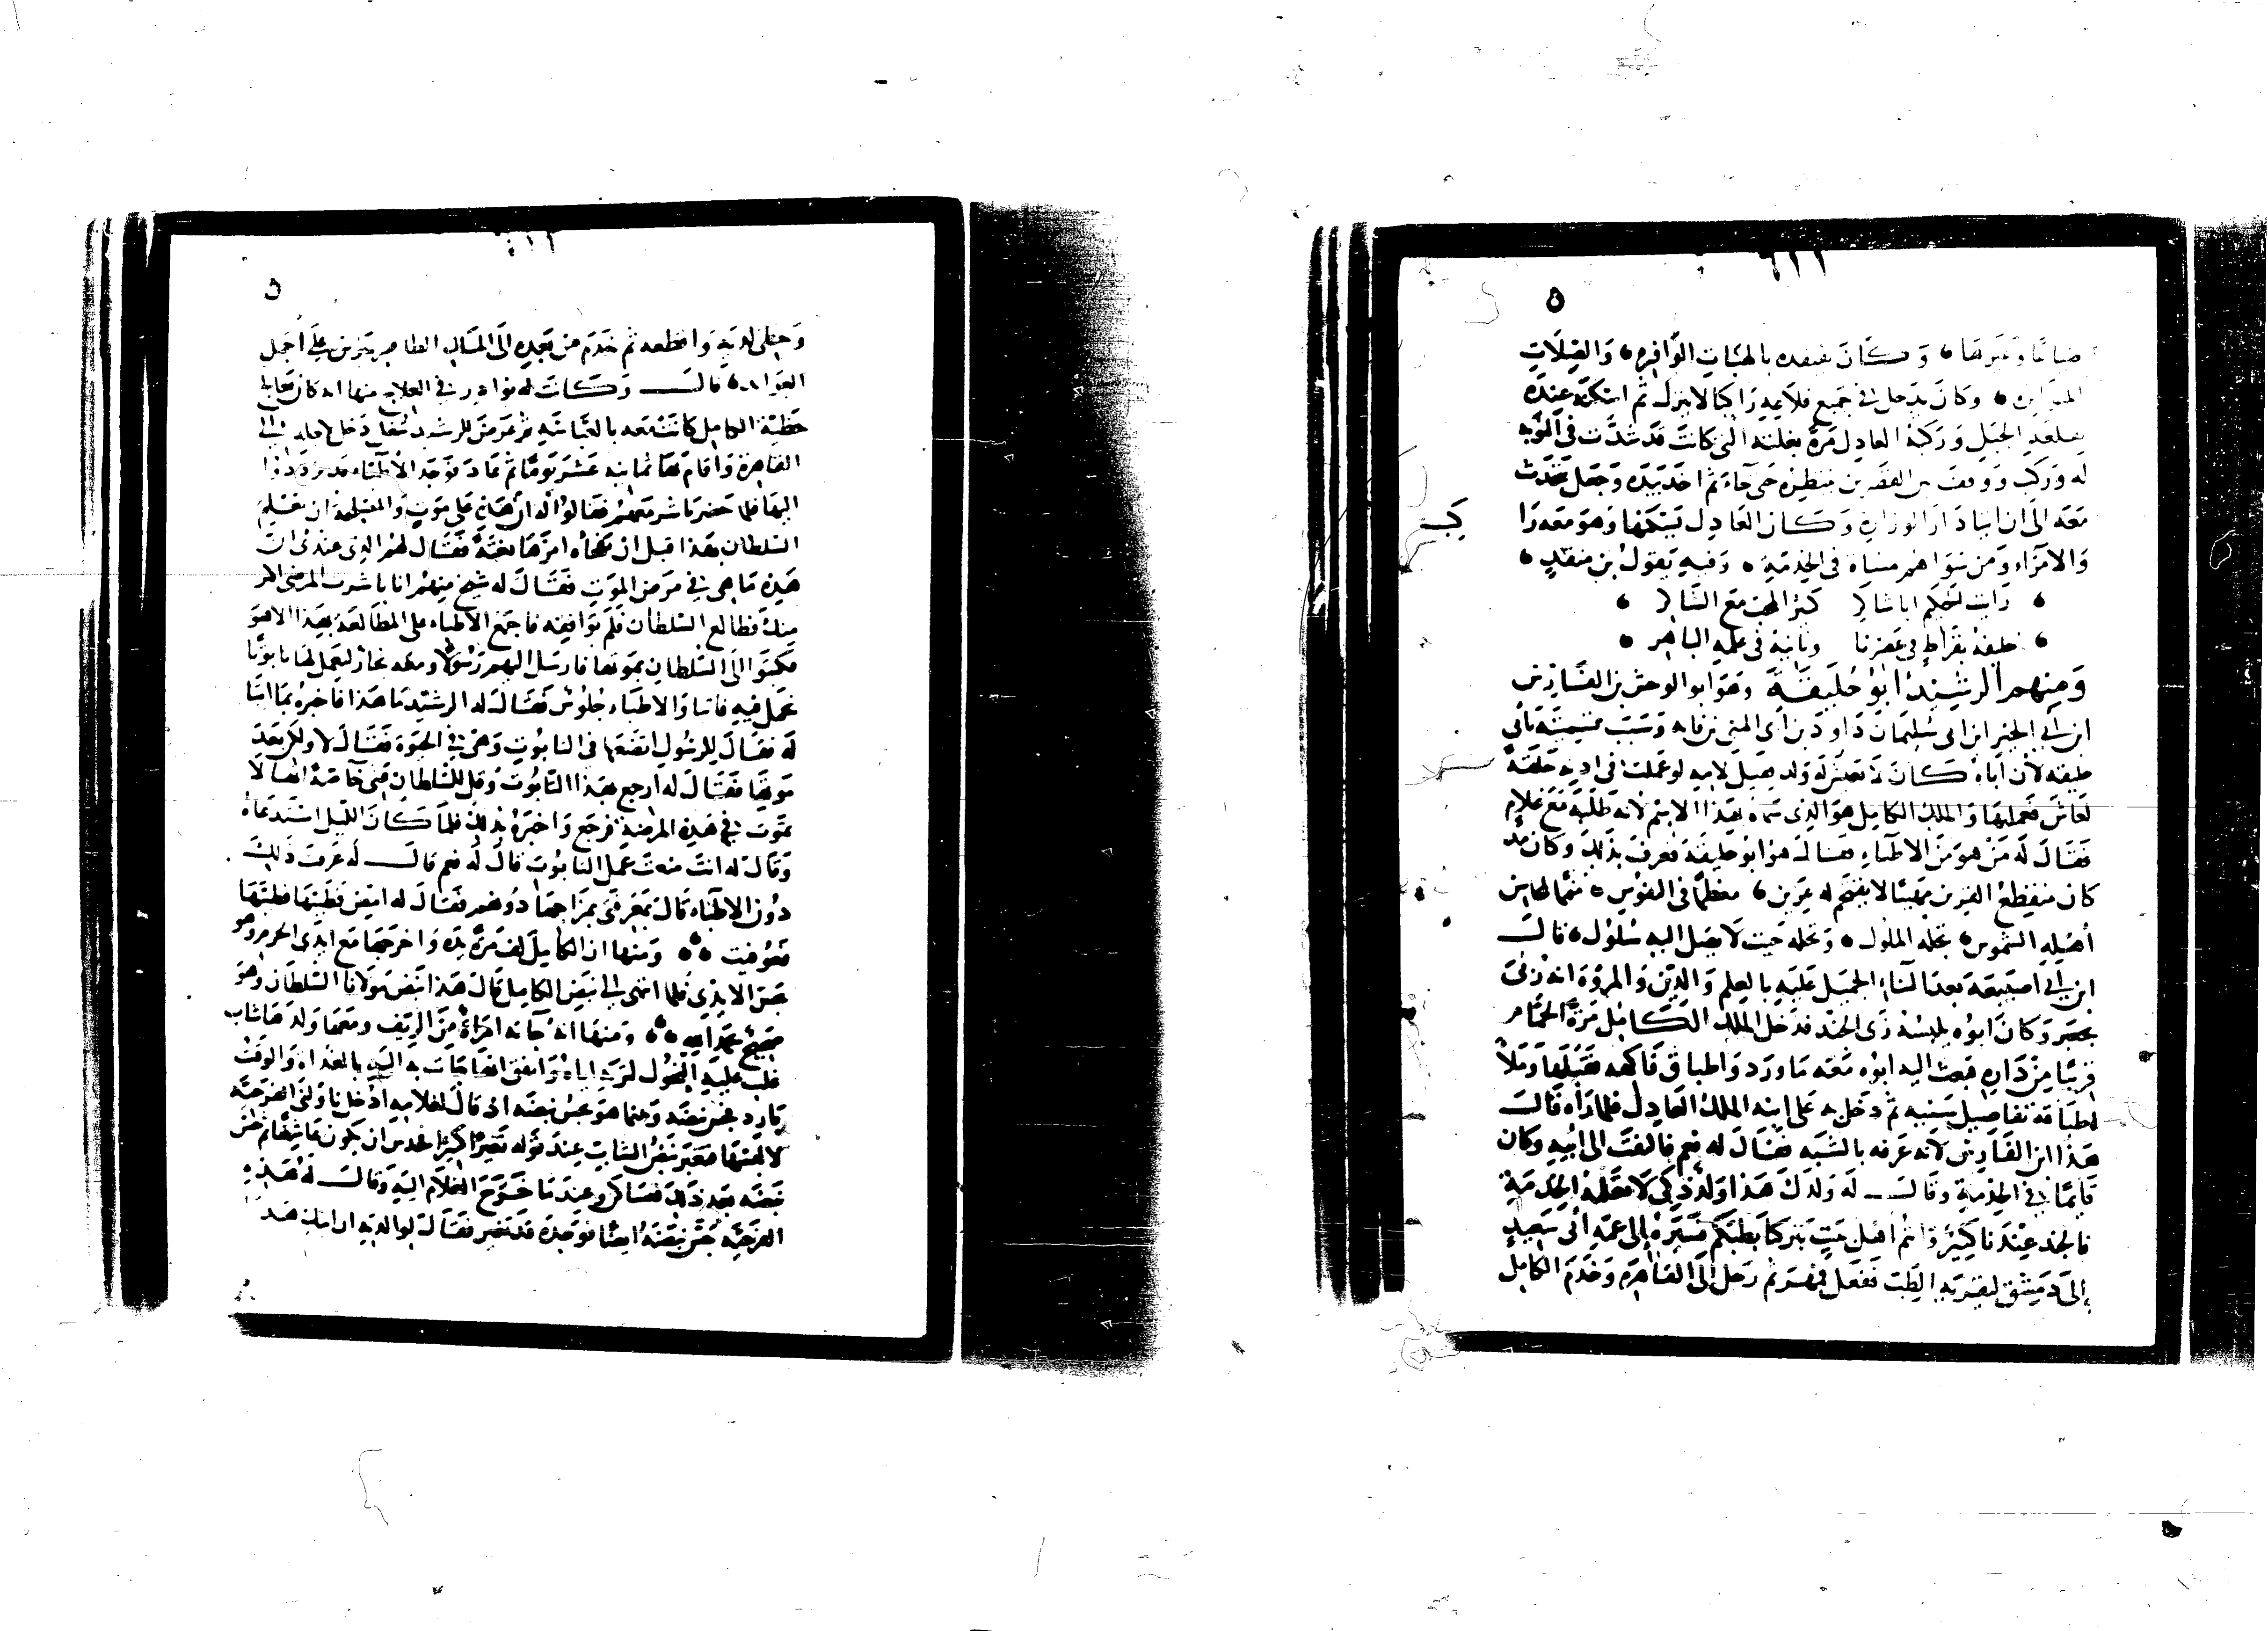 ضياعا وغيرها وكان يفتقده بالهبات الوافرة والصلات
وكان يدخل في جميع قلاعه راكبا لا ينزل ثم اسكنه عنده
بقلعة الجبل وركب العادل مرة بغلته التي كانت قد شدت
له وركب ووقف بين القصرين ينتظره حتى جاء ثم اخذ بيده وجعل يتحدث
معه الى ان اتيا دار الوزارة وكان العادل يسكنها وهو معه را
كب
والامراء ومن سواهم مشاة في الخدمة وفيه يقول بن منقذ
رايت لحكم ابا شاكر كثير المحب مع الشاكر
خليفة بقراط في عصرنا وثانيه في علمه الباهر
ومنهم الرشيد ابو حليقة وهو ابو الوحش بن الفارس
ابن ابي الخير ابن ابي سليمان داود بن ابي المنى بن فانه وسبب تسميته بابي
حليقة لان اباه كان لا يعيش له ولد فقيل لامه لو عملت في اذنه حلقة
لعاش فعملتها والملك الكامل هو الذي سماه بهذا الاسم لانه طلبه مع غلام
فقال له من هو من الاطباء فقال هو ابو حليقة فعرف بذلك وكان قد
كان منقطع القرين مهيبا لا يقتحم له عرين معظما في النفوس
اهيله الشموس تجله الملوك وتحله حيث لا يصل اليه سلوك قال
ابن ابي اصيبعة بعد الثناء الجميل عليه بالعلم والدين والمروة انه ربي
بجعبر وكان ابوه يلبسه زي الجند فدخل الملك الكامل مرة الحمام
قريبا من داره فبعث اليه ابوه معه ماورد واطباق فاكهة فقبلها وملأ
اطباقه تفاصيل سنية ثم دخل به على ابيه الملك العادل فلما رآه قال
هذا ابن الفارس لانه عرفه بالشبه فقال له نعم فالتفت الى ابيه وكان
قائما في الخدمة وقال له ولدك هذا ولد ذكي لا تعلمه الجندية
فالجند عندنا كثير وانتم اهل بيت نتبرك بطبكم فسيره الى عمه ابي سعيد
الى دمشق ليقريه الطب ففعل فمهر ثم رحل الى القاهرة وخدم الكامل
وحظي لديه واقطعه ثم خدم من بعده الى الملك الظاهر بيبرس على اجمل
العوائد قال وكانت له نوادر في العلاج منها انه كان يعالج
حظية الكامل كانت معه بالعباسية ثم عرض للرشيد شغل دخل لاجله الى
القاهرة واقام بها ثمانية عشر يوما ثم عاد فوجد الاطباء قد
اليها فلما حضر باشر معهم فقالوا له ان هذه على موت والمصلحة ان نعلم
السلطان بهذا قبل ان يفجأه امرها بغتة فقال لهم الذي عندي ان
هذه ما هي في مرض الموت فقال له شيخ منهم انا باشرت المرضى اكثر
منك فطالع السلطان فلم يوافقه فاجمع الاطباء على المطالعة بهذا الا هو
فكتبوا الى السلطان بموتها فارسل اليهم رسولا ومعه نجار ليعمل لها تابوتا
تحمل فيه فاتيا والاطباء جلوس فقال له الرشيد ما هذا فاخبره بما اتيا
له فقال للرسول اتضعها في التابوت وهي في الحيوة فقال لا ولكن بعد
موتها فقال له ارجع بهذا التابوت وقل للسلطان عني خاصة انها لا
تموت في هذه المرضة فرجع واخبره بذلك فلما كان الليل استدعاه
وقال له انت منعت عمل التابوت قال له نعم قال له عرفت ذلك
دون الاطباء قال بمعرفتي بمزاجها دونهم فقال له امض فطبها فطبها
فعوفيت ومنها ان الكامل لف مرة يده واخرجها مع ايدي الحرم وهو
يجس الايدي فلما انتهى الى نبض الكامل قال هذا نبض مولانا السلطان وهو
صحيح بحمد الله ومنها انه جاءته امرأة من الريف ومعها ولد لها شاب
غلب عليه النحول لمرض اياه واتفق انها جاءت به اليه بالغداة والوقت
بارد فجس نبضه وبينما هو يجس نبضه اذ قال لغلامه ادخل ناولني الفرجية
لالبسها فتغير نبض الشاب عند قوله تغيرا كثيرا فحدس ان يكون عاشقا ثم جس
نبضه بعد ذلك فتساكن وعندما خرج الغلام اليه وقال له هذه
الفرجية جس نبضه ايضا فوجده قد تغير فقال لوالدته ان ابنك هذا